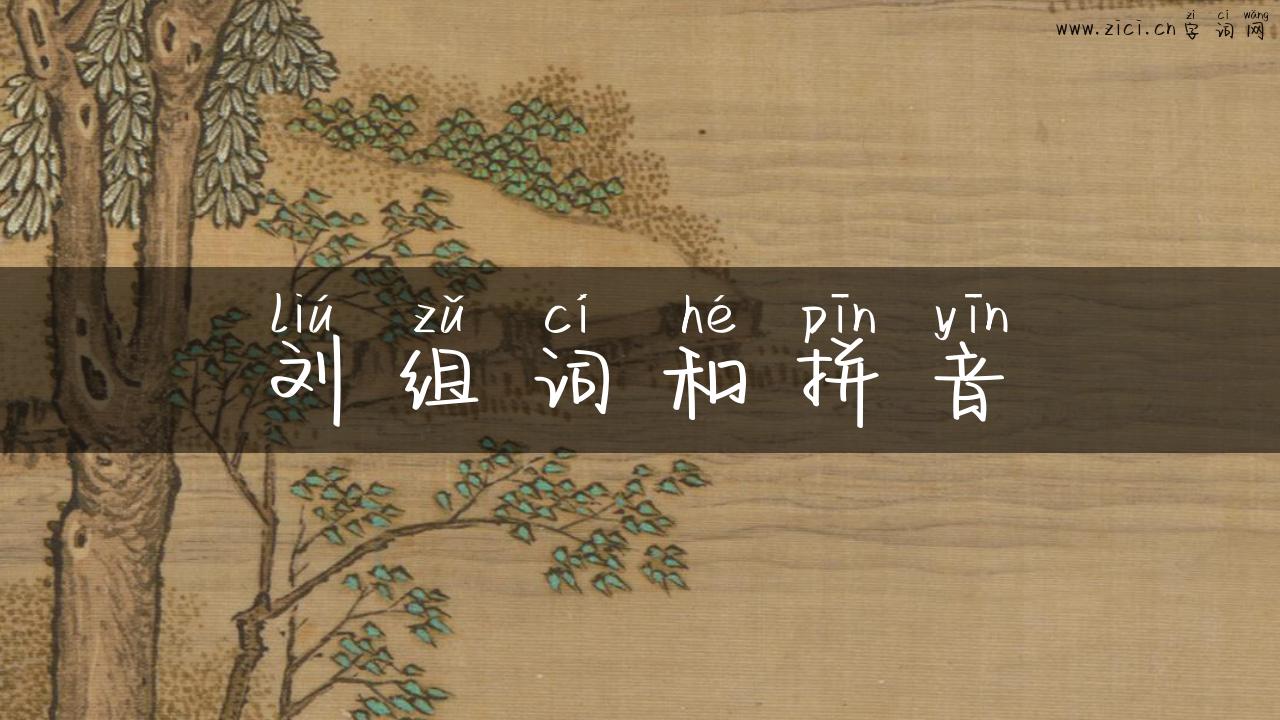 zì cí wǎng
www.zici.cn 字 词 网
liú zǔ cí hé pīn yīn
刘 组 词 和 拼 音